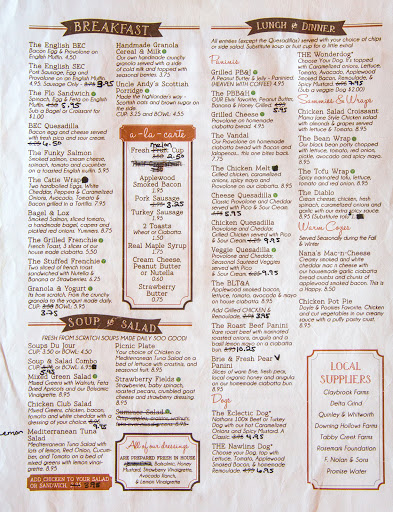 BREAKFAST
The English BEC
Bacon Egg & Provolone on
English Muffin. 4.50
The English SEC
Pork Sausage, Egg and
Provolone on an English Muffin.
4.95 Sausage Only - 3.95
The Flo Sandwich
Spinach, Egg & Feta on
English Muffin. 5.95
Sub a Bagel or Croissant for
$1.00
BEC Quesadilla
Bacon egg and cheese served
with fresh pico and sour cream.
6.50
The Funky Salmon
Smoked salmon, cream cheese,
spinach, tomato and cucumber
on a toasted English muffin. 5.95
The Catie Wrap
Two hardboiled Eggs, White
Cheddar, Peppers & Caramelized
Onions, Avocado, Tomato &
Bacon grilled in a Tortilla. 7.95
Bagel & Lox
Smoked Salmon, sliced tomato,
a handmade bagel, caper and
pickled red onions. Yummies. 8.75
The Grilled Frenchie
French Toast, 3 slices of our
house made delicata. 5.50
The Stuffed Frenchie
Two slices of french toast
sandwiched with Nutella &
Banana or Strawberries. 6.25
Granola & Yogurt
It's from scratch. From the crunchy
granola to the yogurt made daily.
CUP: 3.75
Handmade Granola
Cereal & Milk
Our own handmade crunchy
granola served with a side
of your milk and topped with
seasonal berries. 3.75
Uncle Andy's Scottish
Porridge
Made the highlander's way -
Scottish oats and brown sugar on
the side.
CUP: 3.25 and BOWL: 4.55
a-la-carte
melon
Fresh Cup
3.50 2.50
Applewood
Smoked Bacon
2.95
Pork Sausage
3.25
Turkey Sausage
1.95
2 Toasts
Wheat or Ciabatta
1.60
Real Maple Syrup
2.75
Cream Cheese,
Peanut Butter
or Nutella
0.60
Strawberry
Butter
0.75
SOUP & SALAD
FRESH FROM SCRATCH SOUPS MADE DAILY SOO GOOD!
Soups Du Jour
CUP: 3.50 or BOWL: 4.50
Soup & Salad Combo
CUP: 7.95 or BOWL: 8.95
Mixed Green Salad
Mixed Greens with Walnuts, Feta
Dried Apricots and our Balsamic
Vinaigrette. 8.95
Chicken Club Salad
Mixed Greens, chicken, bacon,
tomato and white cheddar with a
dressing of your choice.
Lemon
Mediterranean Tuna
Salad
Mediterranean Tuna Salad with
lots of lemon, Red Onion, Cucumber,
and Tomato on a bed of
mixed greens with lemon vinaigrette.
8.95
ADD CHICKEN TO YOUR SALAD
OR SANDWICH.
Picnic Plate
Your choice of Chicken or
Mediterranean Tuna Salad on a
bed of lettuce with crostinis, and
seasonal fruit. 8.95
Strawberry Fields
Strawberry, baby spinach,
toasted pecans, crumbled goat
cheese and strawberry dressing.
8.95
Summer Salad
All of our dressings
ARE PREPARED FRESH IN HOUSE
Balsamic, Honey
Mustard, Strawberry Vinaigrette,
Avocado Ranch,
& Lemon Vinaigrette
LUNCH & DINNER
All entrées (except the Quesadillas) served with your choice of chips
or side salad. Substitute soup or fruit cup for a little extra!
Paninis
Grilled PB&J
A Peanut Butter & Jelly - Paninied
(HEAVEN WITH COFFEE) 4.95
The PB&H
OUR Elvis' favorite, Peanut Butter,
Banana & Honey, Grilled. 4.95
Grilled Cheese
Provolone on homemade
ciabatta bread. 4.95
The Vandal
Our Provolone on our homemade
ciabatta bread with Bacon and
Jalapenos... this one bites back.
7.75
The Chicken Melt
Grilled chicken, caramelized
onions, spicy mayo and
Provolone on our ciabatta. 8.95
Cheese Quesadilla
Classic Provolone and Cheddar
served with Pico & Sour Cream.
5.95
Chicken Quesadilla
Provolone and Cheddar.
Grilled Chicken served with Pico
& Sour Cream. 9.95
Veggie Quesadilla
Provolone and Cheddar.
Seasonal Sauteed Veggies
served with Pico
& Sour Cream. 9.95
The BLT&A
Applewood smoked bacon,
lettuce, tomato, avocado & mayo
on house ciabatta. 8.95
Add Grilled CHICKEN &
Remoulade 3.95
The Roast Beef Panini
Rare roast beef with marinated
roasted onions, arugula and a
basil lemon mayo on a ciabatta
bun. 10.25
Brie & Fresh Pear
Panini
Slices of warm Brie, fresh pear,
local organic honey and arugula
on our homemade ciabatta bun.
8.95
Dogs
The Eclectic Dog
Nathans 100% Beef or Turkey
Dog with our Hot Caramelized
Onions and Spicy Mustard. A
Classic. 4.95
THE Newtina Dog
Choose your Dog, top with
Lettuce, Tomato, Applewood
Smoked Bacon, & homemade
Remoulade. 6.95
THE Wonderdog
Choose Your Dog, it's topped
with Caramelized onions, Lettuce,
Tomato, Avocado, Applewood
Smoked Bacon, Remoulade, &
Spicy Mayo Mustard. 7.95
(Sub a veggie Dog $2.00)
Sammies & Wraps
Chicken Salad Croissant
Mama Jane Style Chicken salad
with almonds & grapes served
with lettuce & Tomato. 8.95
The Bean Wrap
Our black bean patty chopped
with lettuce, tomato, red onion,
pickle, avocado and spicy mayo.
8.95
The Tofu Wrap
Spicy marinated tofu, lettuce,
tomato and red onion. 8.95
The Diablo
Cream cheese, chicken, fresh
spinach, caramelized onions and
garlic with our astro spicy sauce.
8.95
Warm Cozies
Served Seasonally during the Fall
& Winter
Nana's Mac-n-Cheese
Creamy smoked and white
cheddar mac n cheese with
our housemade garlic ciabatta
bread crumbs and chunks of
applewood smoked bacon. This is
a Happy. 8.50
Chicken Pot Pie
Doyle & Pookies Favorite. Chicken
and cut vegetables in our creamy
sauce with a puffy pastry crust.
8.95
LOCAL
SUPPLIERS
Claybrook Farms
Delta Grind
Quinley & Whitworth
Downing Hollow Farms
Tubby Creek Farms
Rosemary Foundation
F. Nolan & Sons
Promise Water